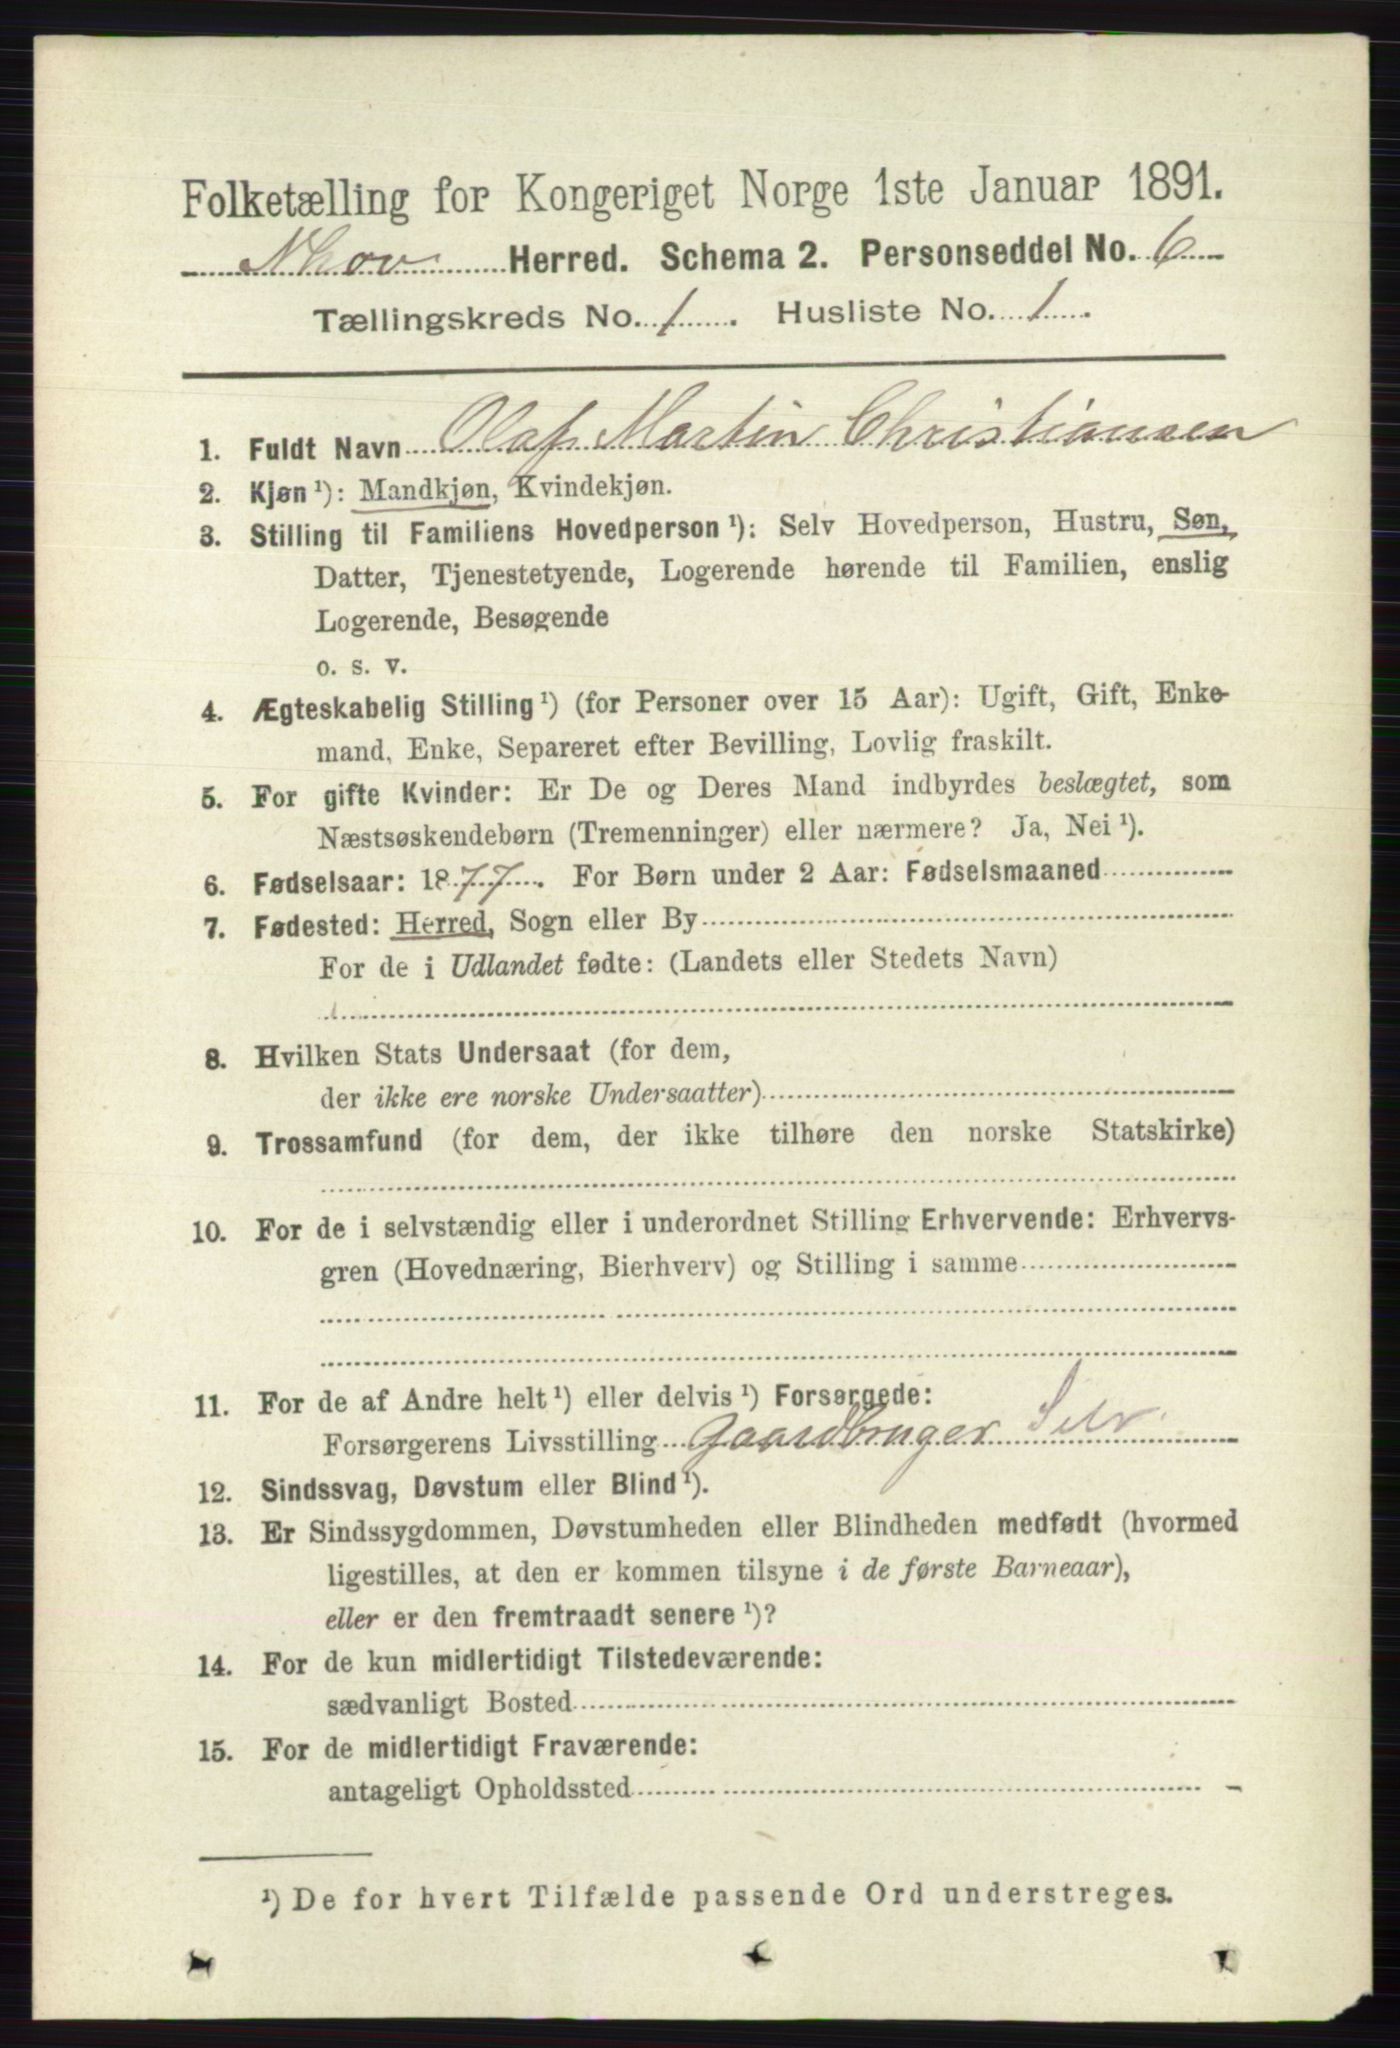 Folketælling for Kongeriget Norge 1ste Januar 1891.
Herred. Schema 2. Personseddel No. 6
Tællingskreds No. 1. Husliste No. 1.
1. Fuldt Navn Olaf Martin Christiansen
2. Kjøn¹): Mandkjøn, Kvindekjøn.
3. Stilling til Familiens Hovedperson¹): Selv Hovedperson, Hustru, Søn,
Datter, Tjenestetyende, Logerende hørende til Familien, enslig
Logerende, Besøgende
o. s. v.
4. Ægteskabelig Stilling¹) (for Personer over 15 Aar): Ugift, Gift, Enke-
mand, Enke, Separeret efter Bevilling, Lovlig fraskilt.
5. For gifte Kvinder: Er De og Deres Mand indbyrdes beslægtet, som
Næstsøskendebørn (Tremenninger) eller nærmere? Ja, Nei¹).
6. Fødselsaar: 1877. For Børn under 2 Aar: Fødselsmaaned
7. Fødested: Herred, Sogn eller By
For de i Udlandet fødte: (Landets eller Stedets Navn)
8. Hvilken Stats Undersaat (for dem,
der ikke ere norske Undersaatter)
9. Trossamfund (for dem, der ikke tilhøre den norske Statskirke)
10. For de i selvstændig eller i underordnet Stilling Erhvervende: Erhvervs-
gren (Hovednæring, Bierhverv) og Stilling i samme
11. For de af Andre helt¹) eller delvis¹) Forsørgede:
Forsørgerens Livsstilling Gaardbruger Selv
12. Sindssvag, Døvstum eller Blind¹).
13. Er Sindssygdommen, Døvstumheden eller Blindheden medfødt (hvormed
ligestilles, at den er kommen tilsyne i de første Barneaar),
eller er den fremtraadt senere¹)?
14. For de kun midlertidigt Tilstedeværende:
sædvanligt Bosted
15. For de midlertidigt Fraværende:
antageligt Opholdssted
¹) De for hvert Tilfælde passende Ord understreges.